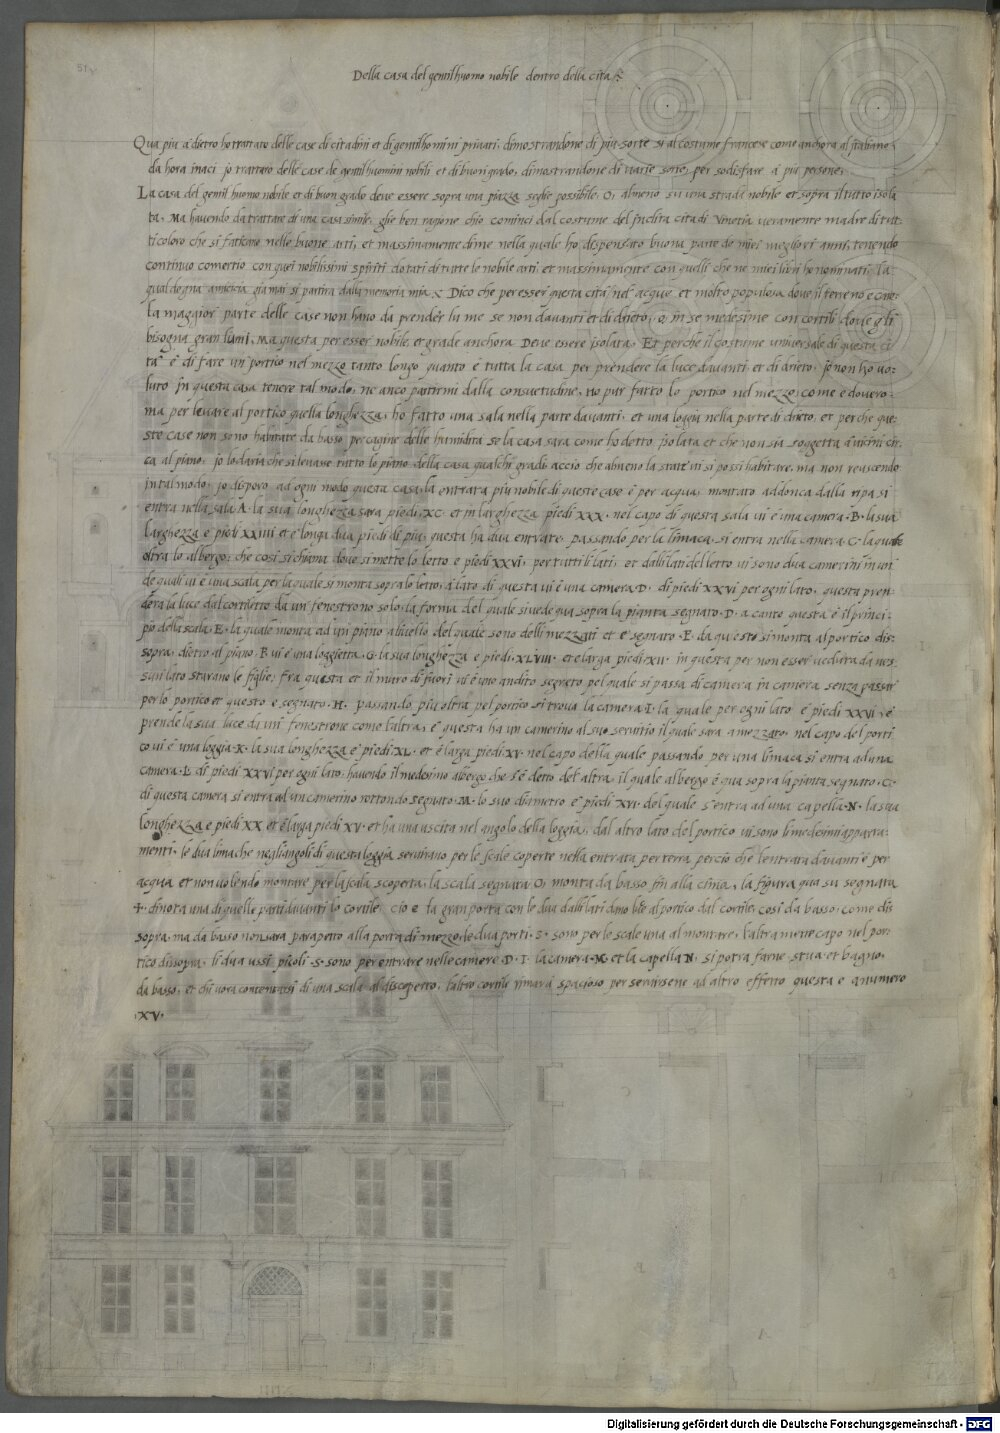 51v
Della casa del gentilhuomo nobile dentro della cita
Qua piu a dietro ho trattato delle case di citadini et di gentilhomini privati, dimostrandone di piu sorte si al costume francese come anchora al italiano
da hora inaci jo trattaro delle case de gentilhuomini nobili et di buon grado, dimostrandone di varie sorte, per sodisfare a piu persone.
La casa del gentil huomo nobile et di buon grado deve essere sopra una piazza seglie possibile, O, almeno su una strada nobile et sopra il tutto isola
ta, Ma havendo da trattare di una casa simile, glie ben ragione chio cominci dal costume del inclita cita di Venetia veramente madre di tut
ti coloro che si faticano nelle buone arti, et massinamente di me nella quale ho dispensato buona parte de miei megliori anni, tenendo
continuo comertio con quei nobilissimi spiriti dotati di tutte le nobile arti et massinamente con quelli che ne miei libri ho nominati, la
qual degna amicicia gia mai si partira dalla memoria mia. Dico che per esser questa cita nel acque et molto populosa dove il terreno e caro
la maggior parte delle case non hano da prender lume se non davanti et di drieto, o, in se medesime con cortili dove gli
bisogna gran lumi, Ma questa per esser nobile et grade anchora Deve essere isolata, Et perche il costume universale di questa ci
ta e di fare un portico nel mezzo tanto longo quanto e tutta la casa per prendere la luce davanti et di drieto, jo non ho vo
luto in questa casa tenere tal modo, ne anco partirmi dalla consuetudine, Ho pur fatto lo portico nel mezzo, come e dovero
ma per levare al portico quella longhezza, ho fatto una sala nella parte davanti, et una loggia nella parte di drieto, et perche que
ste case non sono habitate da basso per cagine delle humidita se la casa sara come ho detto isolata et che non sia soggetta a vicini cir
ca al piano, jo lo daria che si levasse tutto lo piano della casa qualchi gradi accio che almeno la state vi si possi habitare, ma non reuscendo
in tal modo, jo disporo ad ogni modo questa casa, la entrata piu nobile di queste case e per acqua, montato addonca dalla ripa si
entra nella sala A. la sua longhezza sara piedi .XC. et in larghezza piedi XXX, nel capo di questa sala vi e una camera .B. la sua
larghezza e piedi XXIIII et e longa dua piedi di piu, questa ha dua entrate, passando per la limaca si entra nella camera C. la quale
oltra lo albergo, che cosi si chiama dove si mette lo letto e piedi XXVI, per tutti li lati, et dalli lati del letto vi sono dua camerini in un
de quali vi e una scala per la quale si monta sopra lo letto, a lato di questa vi e una camera D. di piedi XXVI per ogni lato, questa pren
dera la luce dal cortiletto da un fenestrono solo, la forma del quale si vede qua sopra la pianta segnato .D. a canto questa e il princi
pio della scala .E. la quale monta ad un piano a livello del quale sono delli mezzati et e segnato .F. da questo si monta al portico dis
sopra, dietro al piano .F. vi e una loggietta .G. la sua longhezza e piedi .XLVIII. et e larga piedi .XII. in questa per non esser veduta da nes
sun lato starano le figlie, fra questa et il muro di fuori vi e uno andito segreto pel quale si passa di camera in camera senza passar
per lo portico et questo e segnato .H. passando piu oltra pel portico si trova la camera .I. la quale per ogni lato e piedi XXVI et
prende la sua luce da un fenestrone come l'altra, e questa ha un camerino al suo servitio il quale sara amezzato, nel capo del porti
co vi e una loggia .K. la sua longhezza e piedi .XL. et e larga piedi .XV. nel capo della quale passando per una limaca si entra ad una
camera .L. di piedi XXVI per ogni lato, havendo il medesimo albergo che s'e detto del altra, il quale albergo e qua sopra la pianta segnato .C.
di questa camera si entra ad un camerino rottondo segnato .M. lo suo diametro e piedi .XVI. del quale s'entra ad una capella .N. la sua
longhezza e piedi XX et e larga piedi XV. et ha una uscita nel angolo della loggia, dal altro lato del portico vi sono li medesimi apparta
menti, le dua limache negli angoli di questa loggia servirano per le scale coperte nella entrata per terra percio che l'entrata davanti e per
acqua et non volendo montare per la scala scoperta, la scala segnata O. monta da basso fin alla cima, la figura qua su segnata
+. dinota una di quelle parti davanti lo cortile cio e la gran porta con le dua dalli lati dano luce al portico dal cortile, cosi da basso, come dis
sopra, ma da basso non sara parapetto alla porta di mezzo, le dua porti .S. sono per le scale una al montare, l'altra mette capo nel por
tico dissopra, li dua ussi picoli .S. sono per entrare nelle camere .D. I. la camera .M. et la capella N. si potra farne stua et bagno,
da basso, et chi vora contentarsi di una scala al discoperto, l'altro cortile rimara spacioso per servirsene ad altro effetto questa e a numero
.XV.
Digitalisierung gefördert durch die Deutsche Forschungsgemeinschaft - DFG